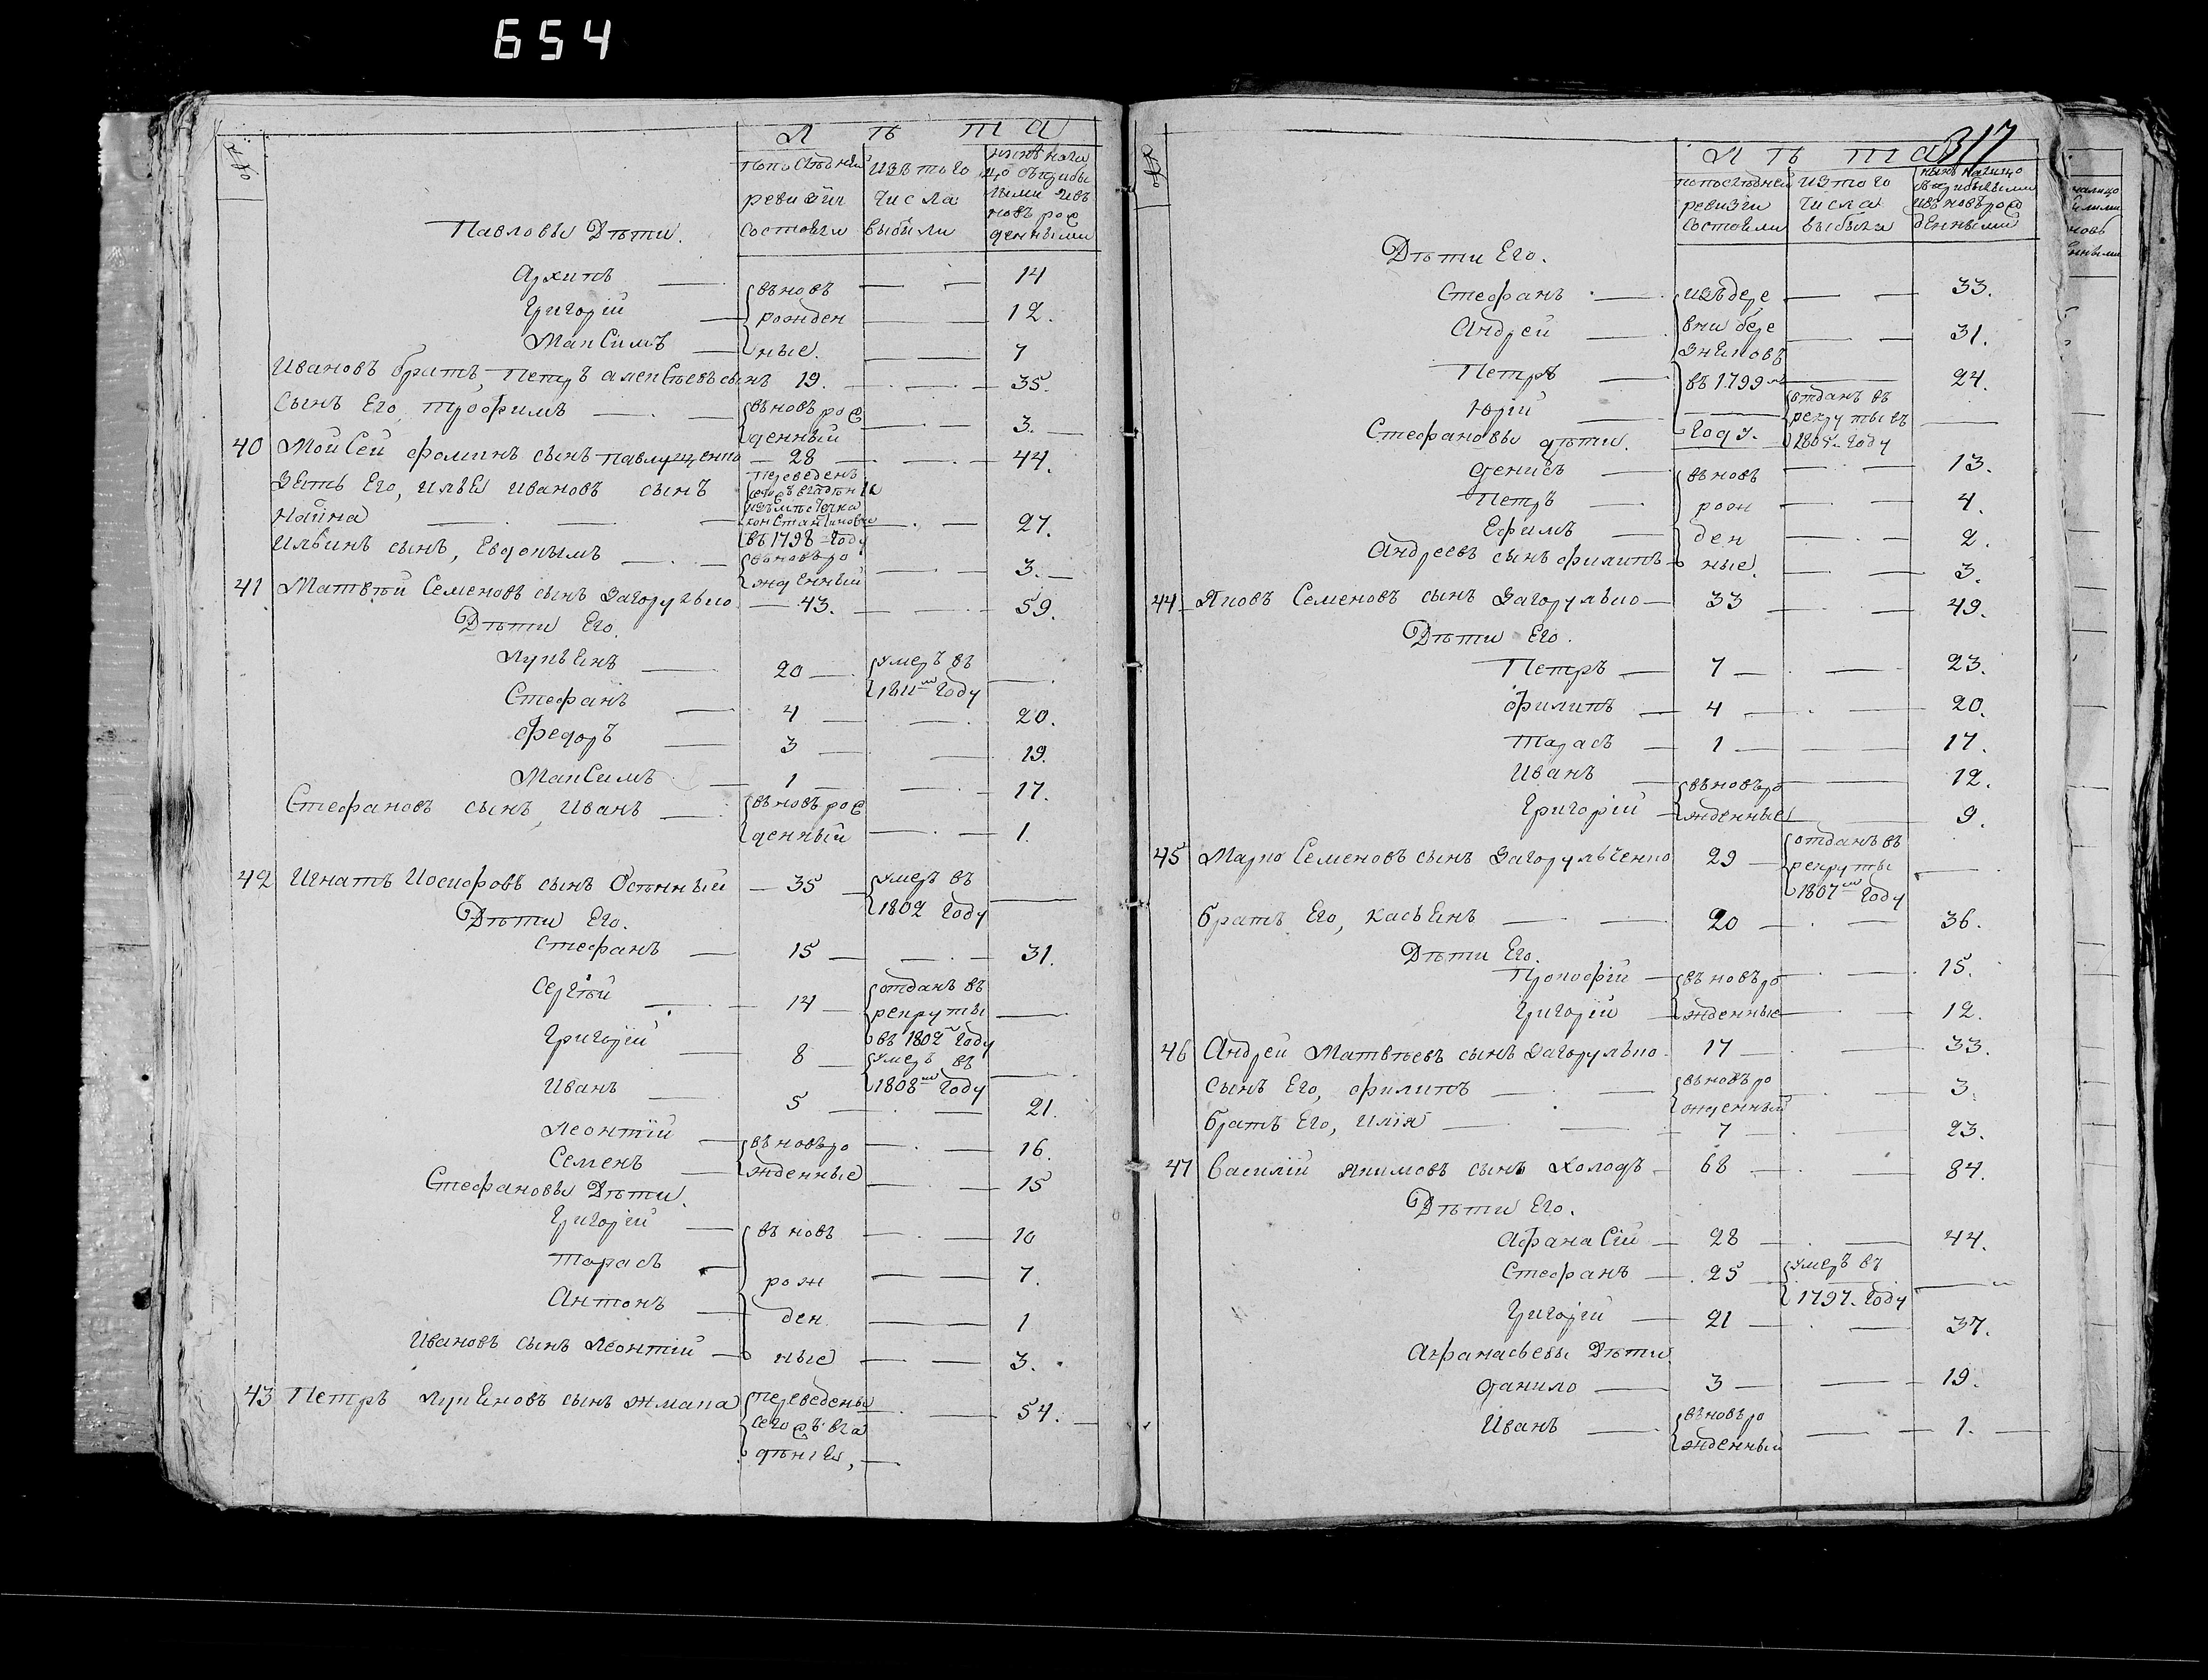 654
Л ѣ т а
№
по последней ревизии состояли
изъ того числа выбыли
нынѣ налицо съ прибылыми и въ новь рожденными
Павловы Дѣти.
Архипъ — — 14
вновь рожденные.
Григорій — — 12.
Максимъ — — 7
Ивановъ братъ, Петръ алексѣевъ сынъ 19. — — 35.
Сынъ Его, трофимъ — вновь рожденный — 3.
40 Мойсей фоминъ сынъ павлущенко — 28 — 44.
Зять Его, илья ивановъ сынъ
переведенъ
въ 1798 году
— 27.
Ильинъ сынъ, Евдокимъ — вновь рожденный — 3.
41 Матвѣй Семеновъ сынъ Загорулько — 43. — 59.
Дѣти Его.
Лукьянъ — 20 — умеръ въ 1811м году —
Стефанъ — 4 — 20.
Федоръ — 3 — 19.
Максимъ — 1 — 17.
Стефановъ сынъ, Иванъ — вновь рожденный — 1.
42 Игнатъ Иосифовъ сынъ — 35 — умеръ въ 1802 году —
Дѣти Его.
Стефанъ — 15 — 31.
Сергѣй — 14 — отданъ въ рекруты въ 1802м году —
Григорій — 8 — умеръ въ 1808м году —
Иванъ — 5 — 21.
Леонтій — вновь рожденные — 16.
Семенъ — 15
Стефановы Дѣти.
Григорій — вновь рожденные — 10
Тарасъ — 7.
Антонъ — 1
Ивановъ сынъ Леонтій — 3.
43 Петръ Лукьяновъ сынъ Жмака переведены сего жъ владѣнія, — 54.
317
Л ѣ т а
№
по последней ревизіи состояли
изъ того числа выбыли
нынѣ налицо съ прибылыми и въ новь рожденными
Дѣти Его.
Стефанъ — изъ дере — 33.
Андрей — вни — 31.
Петръ — въ 1799м — 24.
Юрій — году. — отданъ въ рекруты въ году —
Стефановы дѣти.
денисъ — вновь рожденные. — 13.
Петръ — 4.
Ефимъ — 2.
Андреевъ сынъ филипъ — 3.
44 Яковъ Семеновъ сынъ Загорулько — 33 — 49.
Дѣти Его.
Петръ — 7 — 23.
филипъ — 4 — 20.
Тарасъ — 1 — 17.
Иванъ — вновь рожденные — 12.
Григорій — 9.
45 Марко Семеновъ сынъ Загорульченко 29 — отданъ въ рекруты 1807м году —
братъ Его, касьянъ — 20 — 36.
Дѣти Его.
Прокофій — вновь рожденные — 15.
Григорій — 12.
46 Андрей Матвѣевъ сынъ Загорулько — 17 — 33.
сынъ Его, филипъ — вновь рожденный — 3.
братъ Его, илія — 7 — 23.
47 Василій якимовъ сынъ Холодъ — 68 — 84.
Дѣти Его.
Афанасій — 28 — 44.
Стефанъ — 25 — умеръ въ 1797. году —
Григорій — 21 — 37.
Афанасьевы Дѣти
данило — 3 — 19.
Иванъ — вновь рожденный — 1.